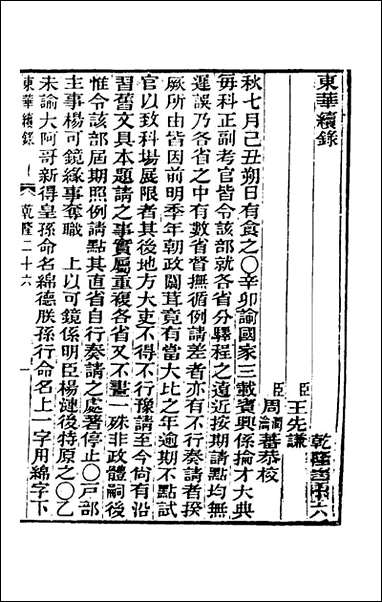 東華續錄
乾隆二十六
臣王先謙
臣周潤蕃周瀹蕃恭校
秋七月己丑朔日有食之○辛卯諭國家三載賓興係掄才大典
每科正副考官皆令該部就各省分驛程之遠近按期請點均無
遲誤乃各省之中有數省督撫循例請差者亦有不行奏請者揆
厥所由皆因前明季年朝政闒茸竟有當大比之年逾期不點試
官以致科場展限者其後地方大吏不得不行豫請至今尙有沿
習舊文具本題請之事實屬重複各省又不畫一殊非政體嗣後
惟令該部屆期照例請點其直省自行奏請之處著停止○戶部
主事楊可鏡緣事奪職 上以可鏡係明臣楊漣後特原之○乙
未諭大阿哥新得皇孫命名綿德朕孫行命名上一字用綿字下
東華續錄 乾隆二十六 一